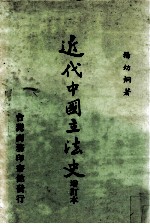 楊幼炯著
近代中國立法史
增訂本
台灣商務印書館發行